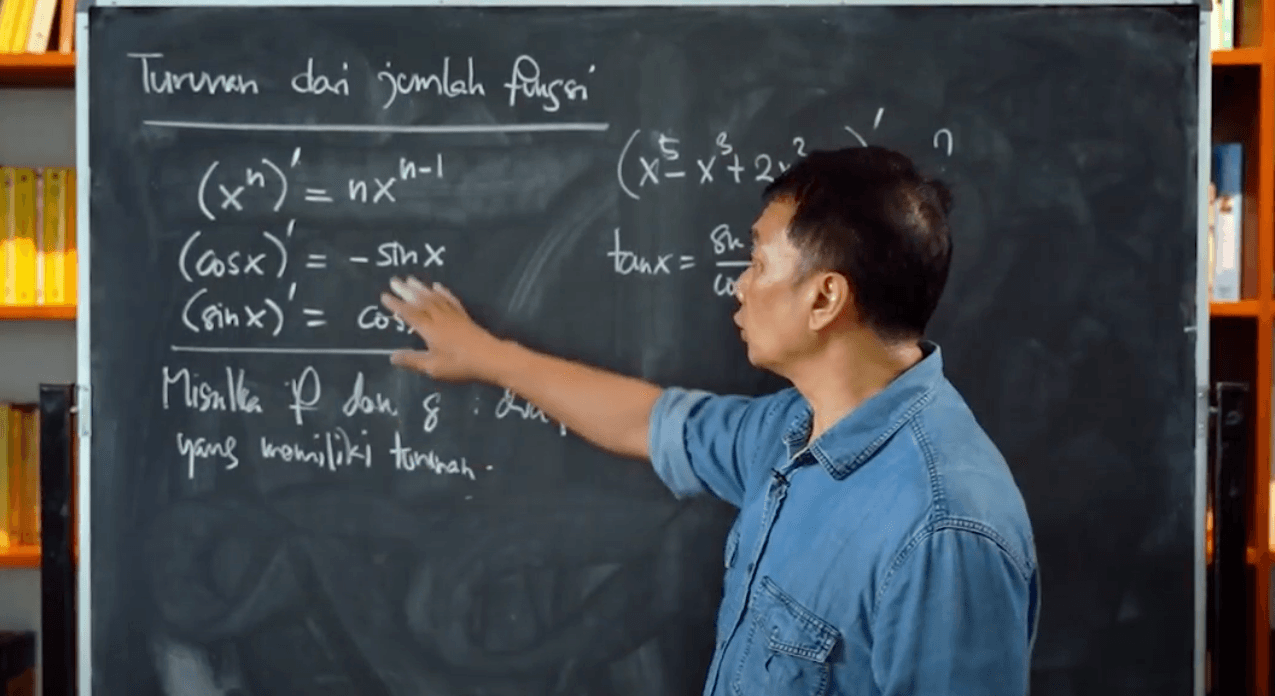 Turunan dari jumlah fungsi
(xⁿ)' = nxⁿ⁻¹
(cosx)' = -sinx
(sinx)' = cos
Misalka f dan g :
yang memiliki turunan.
(x⁵ - x³ + 2x² )' ?
tanx =